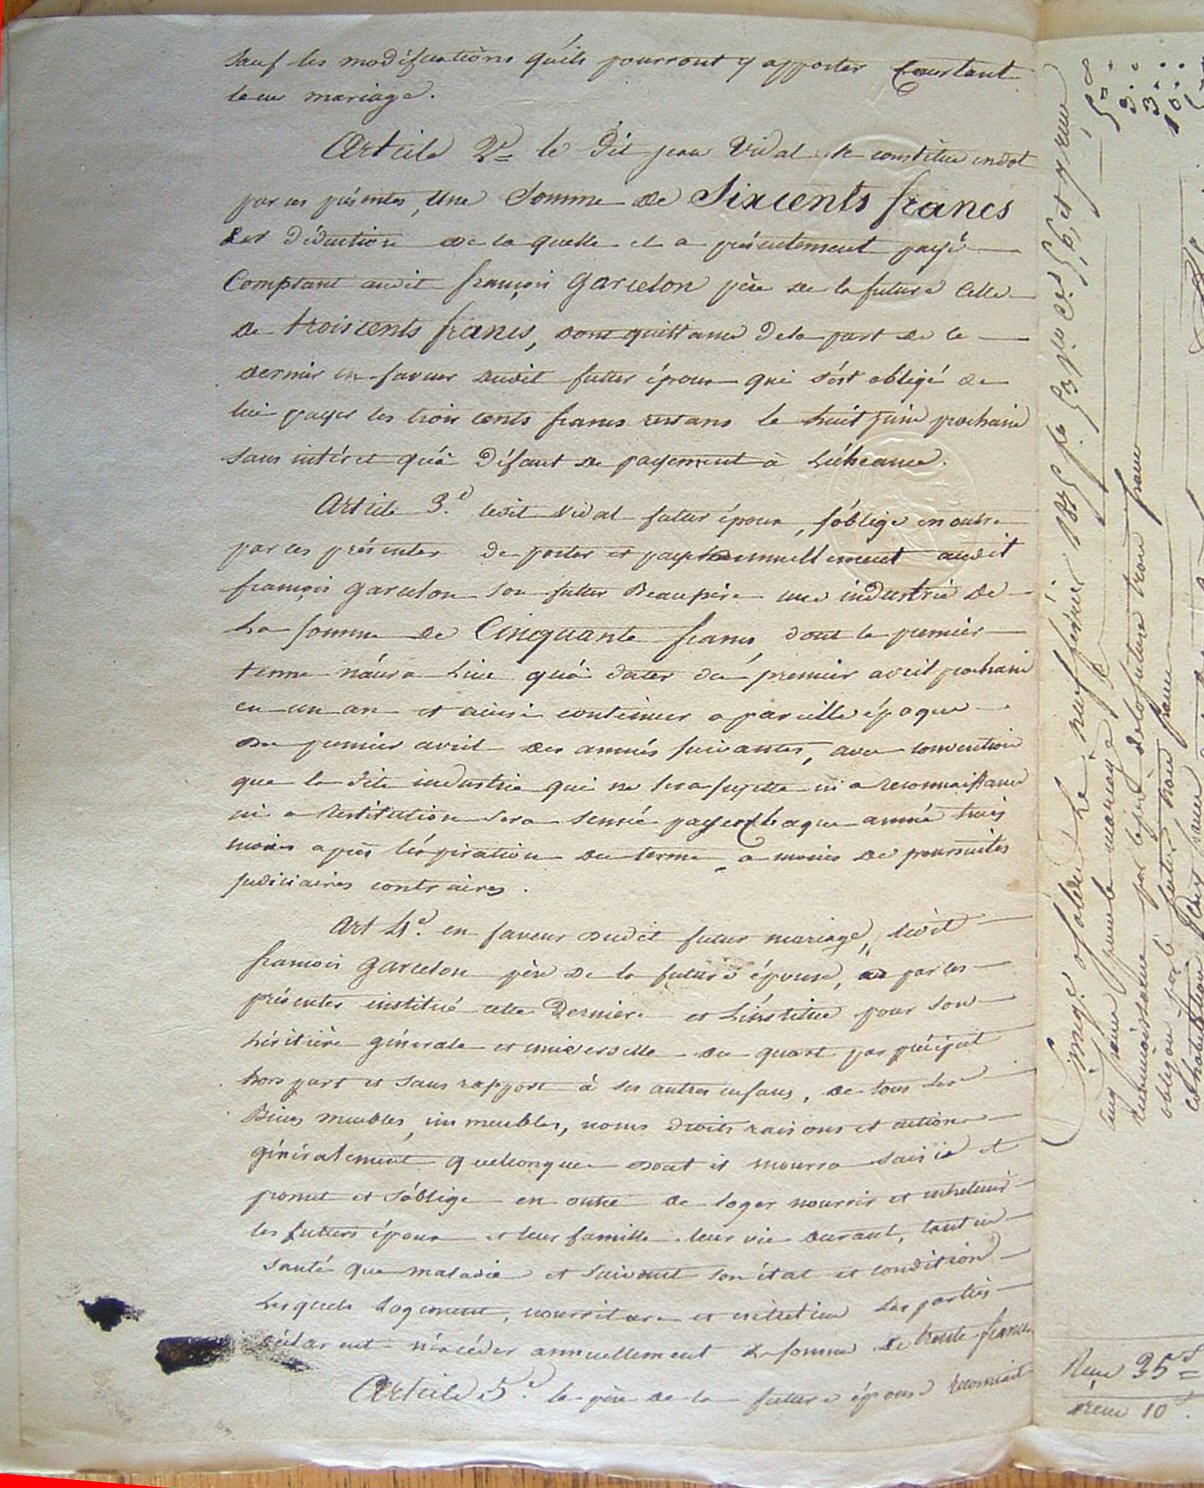 sauf les modifications qu'ils pourront y apporter Constant
leur mariage.
Article 2e le dit jean Vidal se constitue en dot
par ces présentes, une Somme de Six cents francs
en Déduction de la quelle il a présentement payé
Comptant audit françois garcelon père de la future celle
de trois cents francs, dont quittance de la part de ce
dernier en faveur dudit futur époux qui s'est obligé de
lui payer les trois cents francs restans le huit juin prochain
sans intéret qu'à défaut de payement à l'échéance.
Article 3.e ledit Vidal futur époux, s'oblige en outre
par ces présentes de porter et payer annuellement audit
françois garcelon son futur Beaupère une industrie de
la somme de Cinquante francs, dont le premier
terme n'aura lieu qu'à dater du premier avril prochain
en un an et ainsi continuer a pareille époque
du premier avril des années suivantes, avec convention
que la dite industrie qui ne sera sujette ni a reconnaissance
ni a Restitution sera sensée payée chaque année trois
mois après l'éxpiration du terme, a moins de poursuites
judiciaires contraires.
Art 4.e en faveur dudit futur mariage, ledit
françois garcelon père de la future épouse, a par ces
présentes institué cette Dernière et l'institue pour son
héritière générale et universelle du quart par préciput
hors part et sans rapport à ses autres enfans, de tous ses
Biens meubles, immeubles, noms droits raisons et actions
généralement quelconques dont il mourra saisi et
promet et s'oblige en outre de loger nourrir et entretenir
les futurs époux et leur famille leur vie durant, tant en
santé que maladie et suivant son état et condition
Lesquels logement, nourriture et entretien les parties
déclarent n'éxcéder annuellement la somme de trente francs
Article 5.e le père de la future épouse reconnait
Enregé à le neuf février 1835 fo
cinq francs pour le mariage
reconnaissance par le père de la future trois francs
obligation par le futur trois francs
Reçu 35